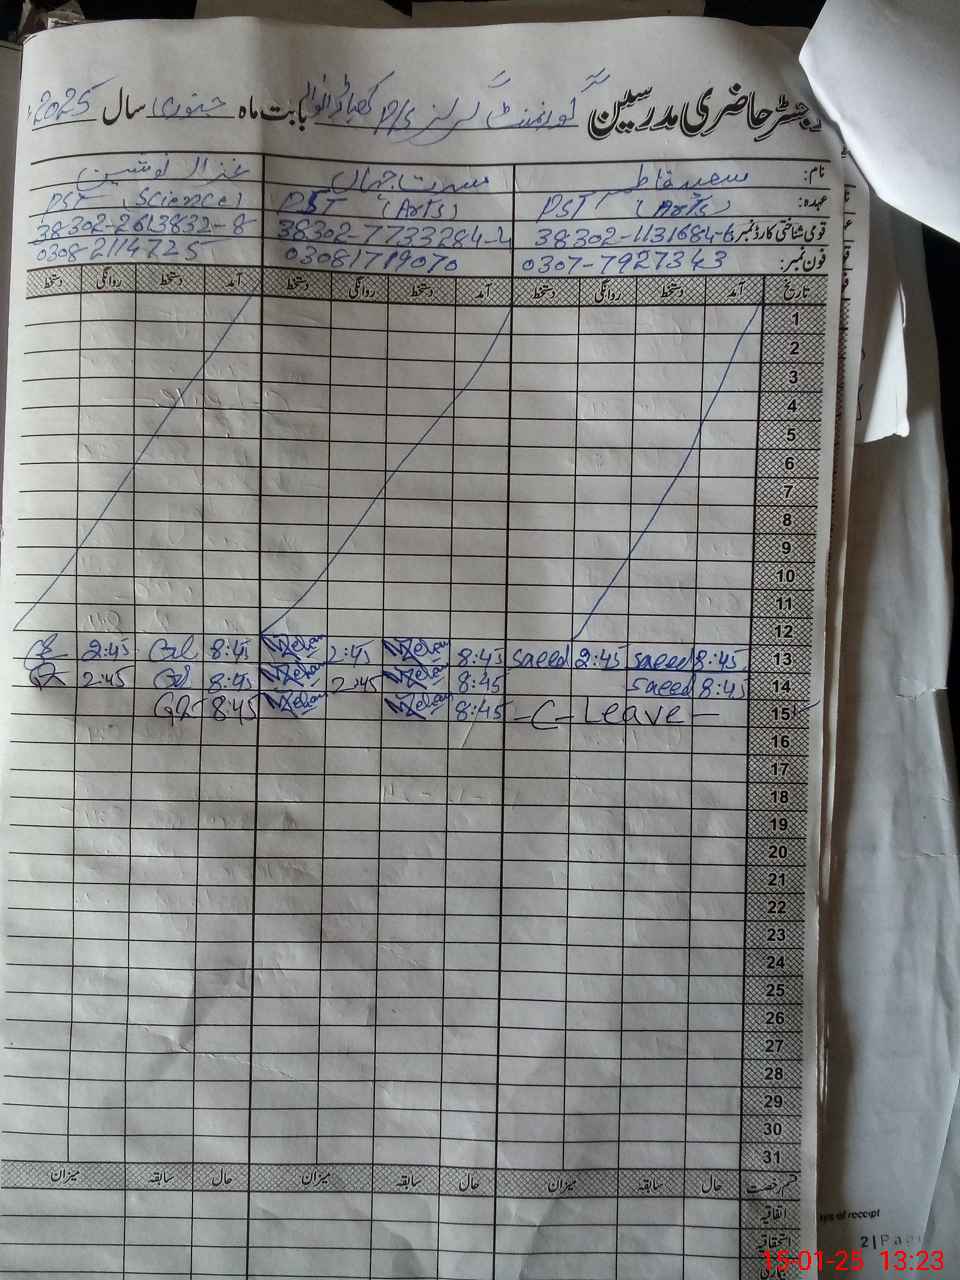 رجسٹر حاضری مدرسین گورنمنٹ گرلز P/S کھاڈانوالہ بابت ماہ جنوری سال 2025
نام: سعید فاطمہ مسرت جہاں غزالہ نوشین
عہدہ: PST (Arts) PST (Arts) PST (Science)
قومی شناختی کارڈ نمبر 38302-1131684-6 38302-7733284-4 38302-2613832-8
فون نمبر: 0307-7927343 03081719070 0308 2114725
تاریخ آمد دستخط روانگی دستخط آمد دستخط روانگی دستخط آمد دستخط روانگی دستخط
1
2
3
4
5
6
7
8
9
10
11
12
13 8:45 saeed 2:45 saeed 8:45 2:45 8:45 2:45
14 8:45 saeed 8:45 2:45 8:45 2:45
15 -C- Leave - 8:45 8:45
16
17
18
19
20
21
22
23
24
25
26
27
28
29
30
31
قسم رخصت حال سابقہ میزان حال سابقہ میزان حال سابقہ میزان
اتفاقیہ
استحقاقیہ
بیماری
of receipt
2 | Pa
15-01-25 13:23